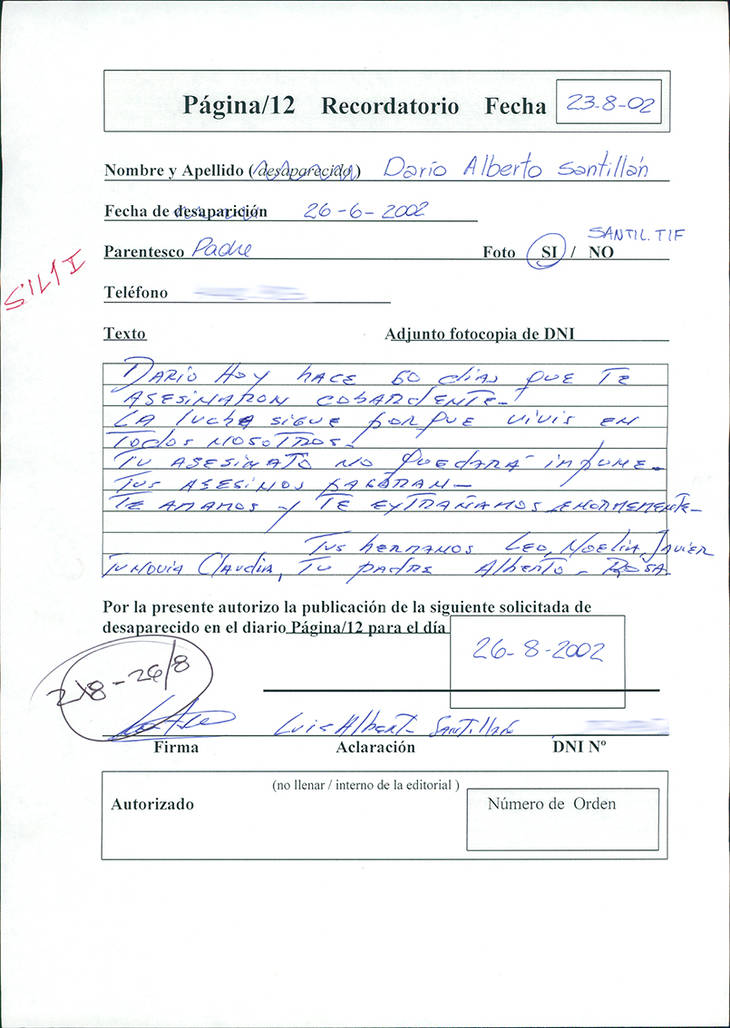 Página/12 Recordatorio Fecha 23-8-02
Nombre y Apellido (desaparecido) Darío Alberto Santillán
Fecha de desaparición 26-6-2002
SANTIL.TIF
Parentesco Padre Foto SI / NO
Teléfono
Texto Adjunto fotocopia de DNI
DARIO HOY HACE 60 dias QUE TE
ASESINARON COBARDENTE-
LA lucha sigue porque VIVIS EN
TODOS NOSOTROS-
TU ASESINATO NO QUEDARÁ IMPUNE-
TUS ASESINOS PAGARAN-
TE AMAMOS y TE EXTRAÑAMOS ENORMEMENTE-
Tus hermanos LEO, NOELIA, JAVIER
TU NOVIA CLAUDIA, Tu padre Alberto- ROSA.
Por la presente autorizo la publicación de la siguiente solicitada de
desaparecido en el diario Página/12 para el día
26-8-2002
26/8
Luis Alberto Santillán
Firma Aclaración DNI Nº
(no llenar / interno de la editorial )
Autorizado Número de Orden